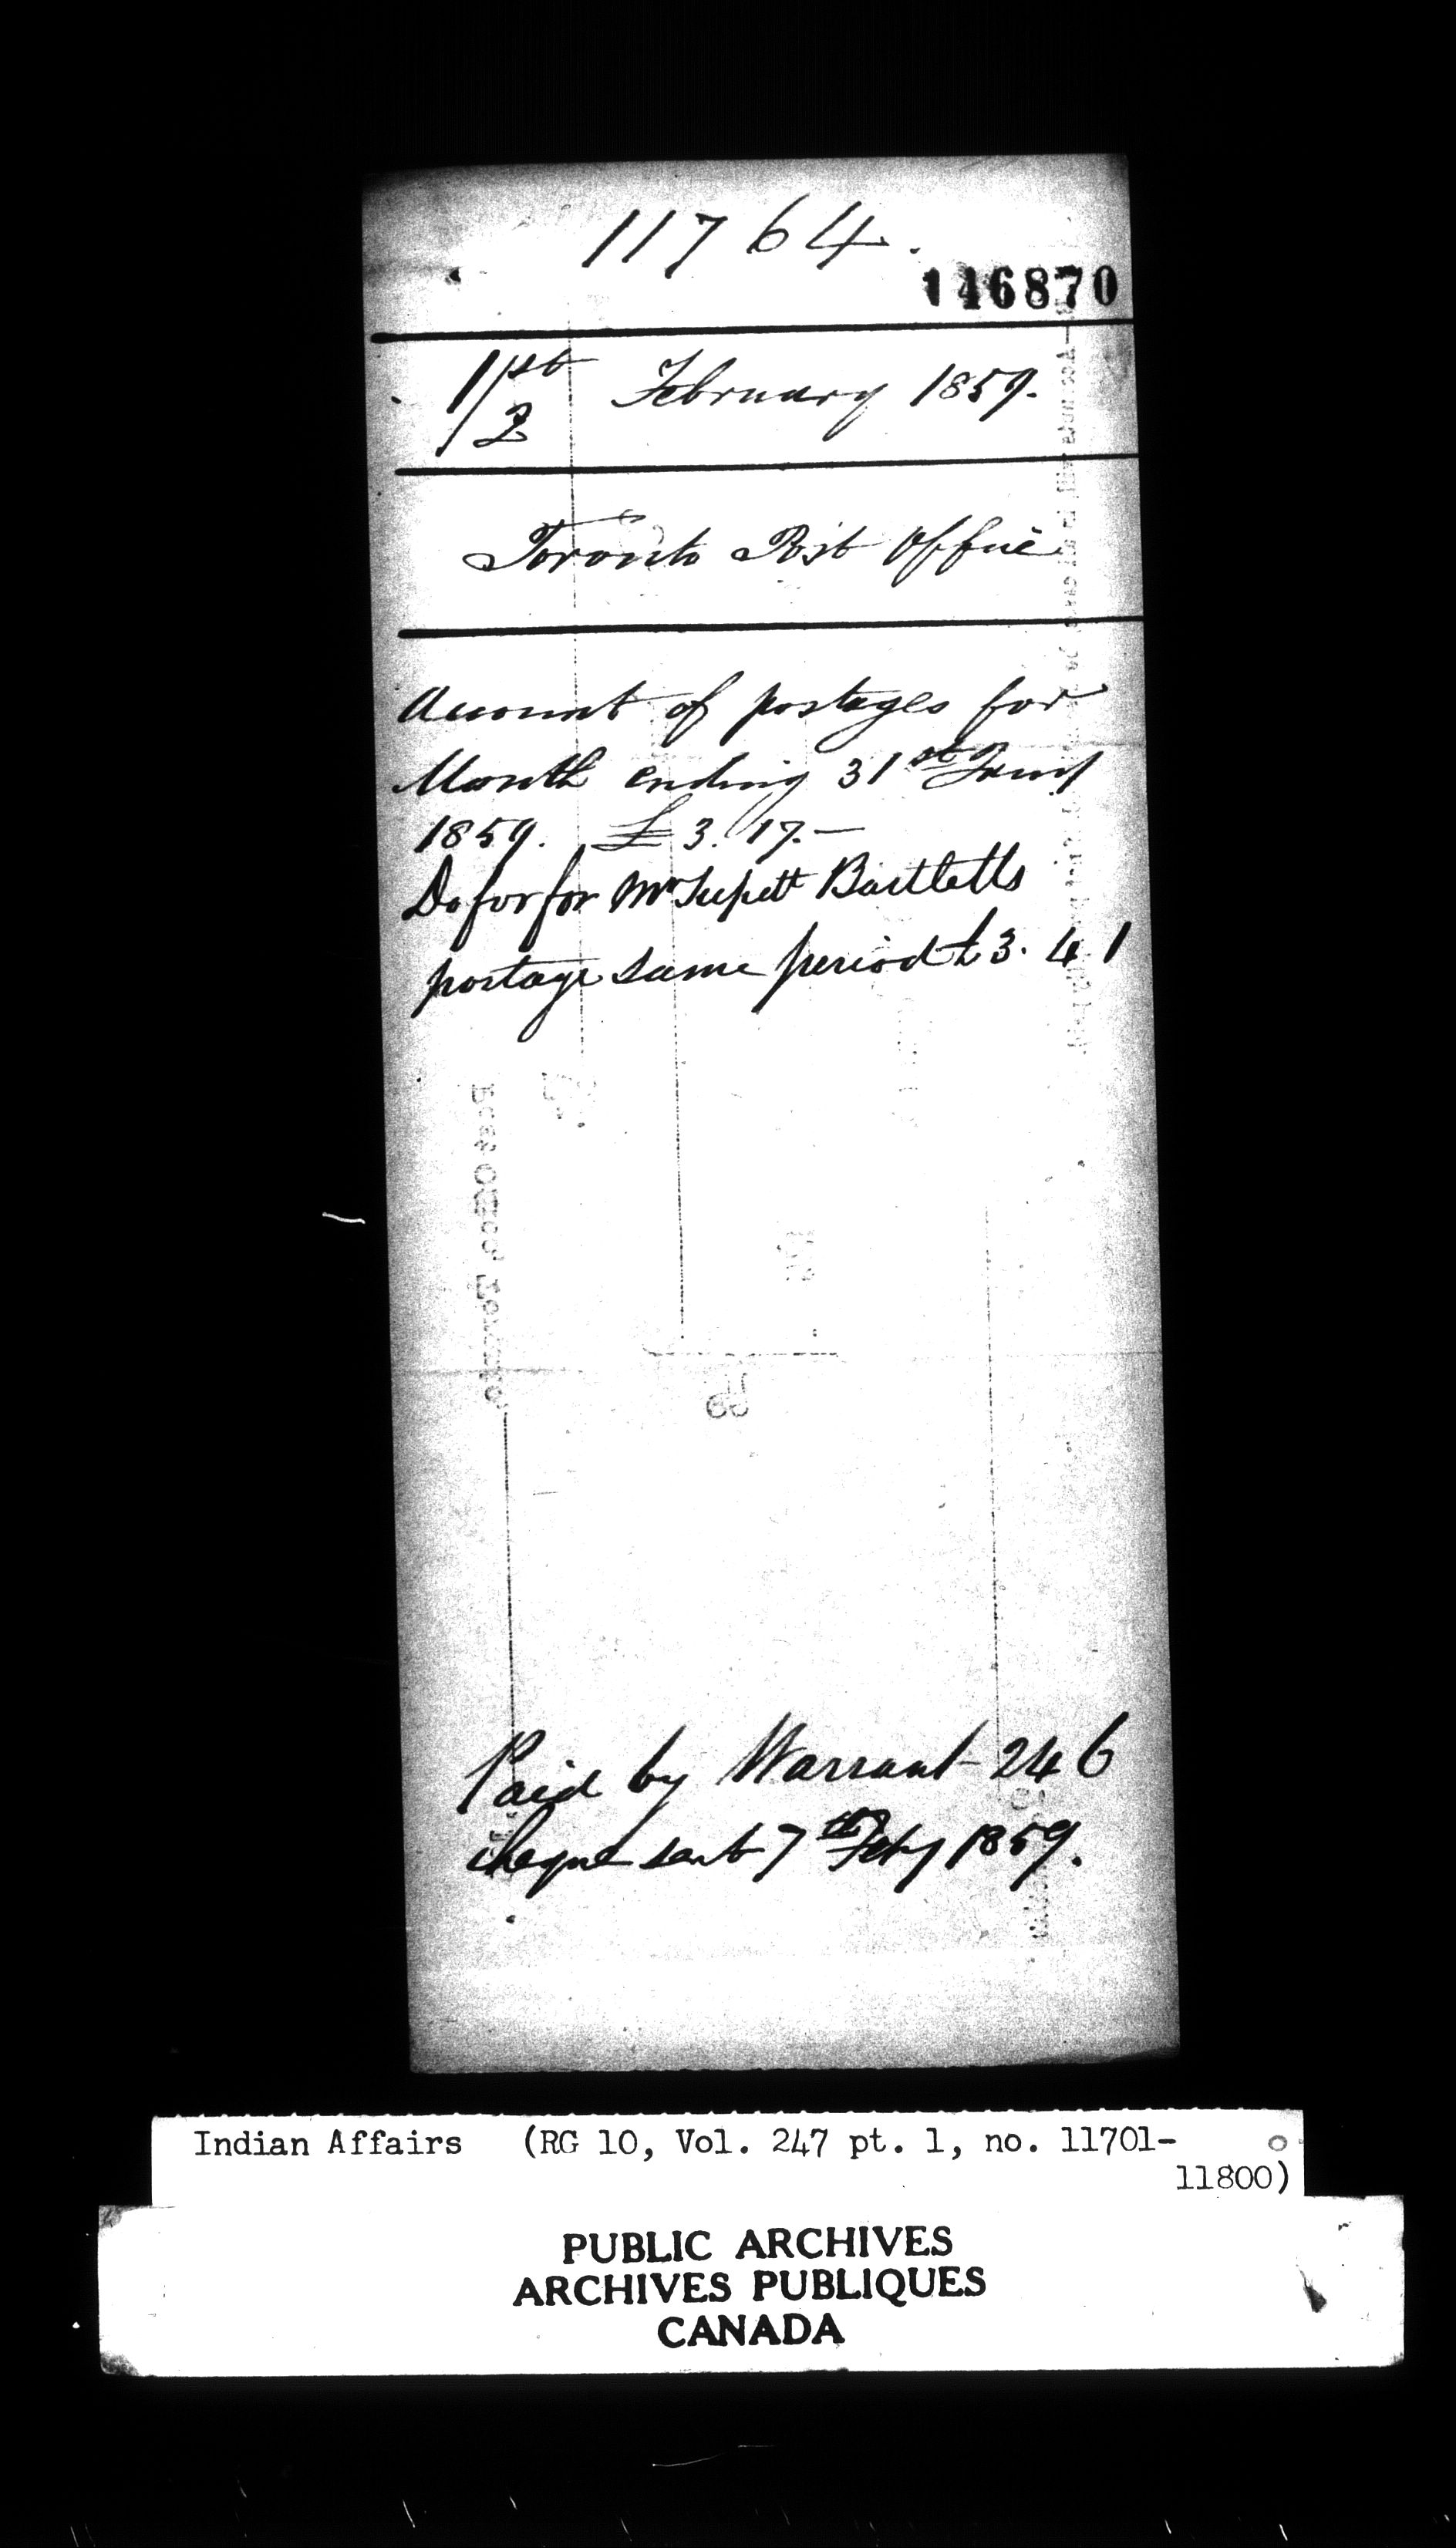 11764.
146870
1st/2 February 1859.
Toronto Post Office
Account of postages for
Month ending 31st Jany
1859. £3. 17. —
Do for for Mr Supett Bartletts
postage same period £3. 4. 1
Paid by Warrant 246
cheque sent 7th Feby 1859.
Indian Affairs (RG 10, Vol. 247 pt. 1, no. 11701-
11800)
PUBLIC ARCHIVES
ARCHIVES PUBLIQUES
CANADA